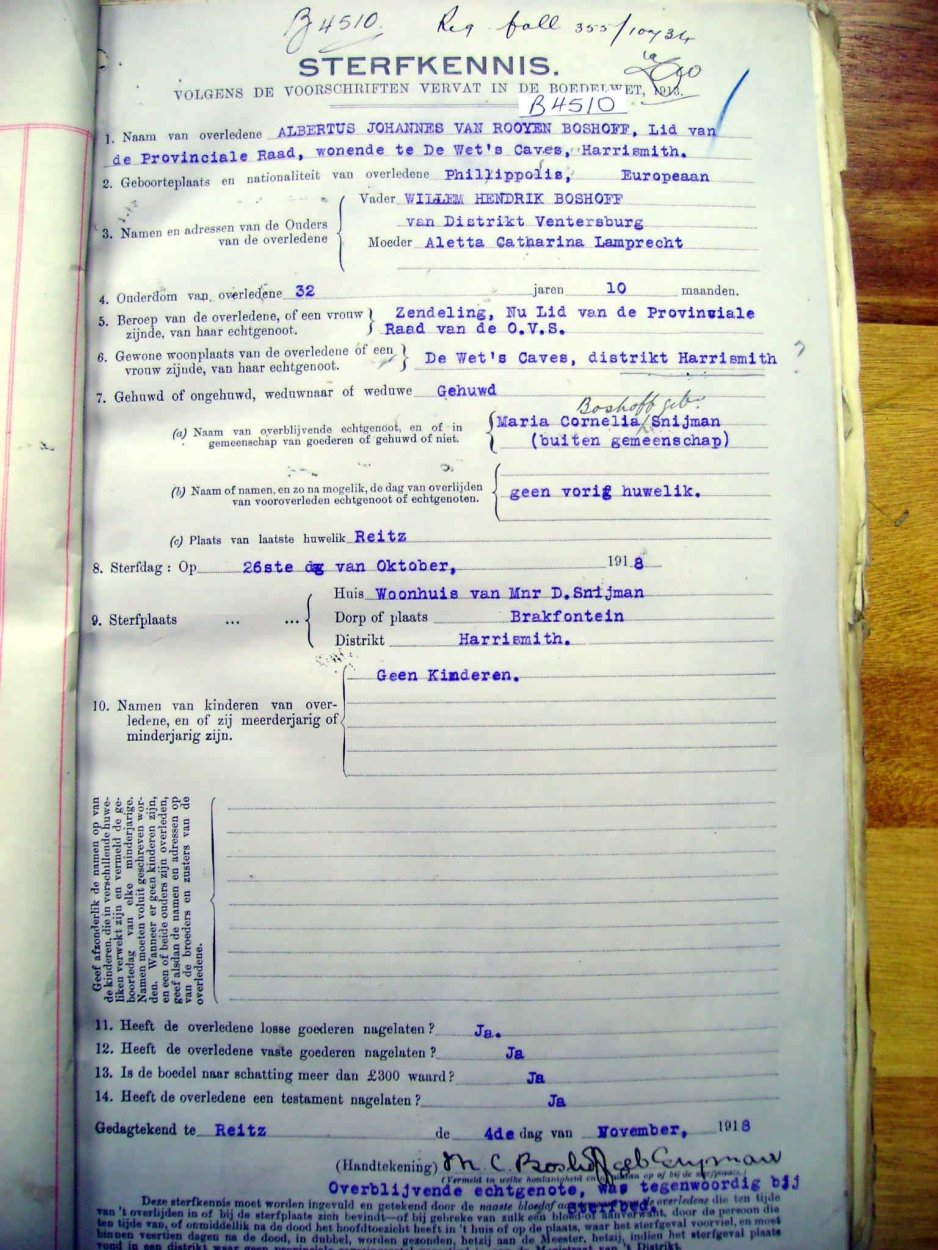 B4510. Reg fall 355/10 34
STERFKENNIS.
VOLGENS DE VOORSCHRIFTEN VERVAT IN DE BOEDELWET, 1913.
B4510
1. Naam van overledene ALBERTUS JOHANNES VAN ROOYEN BOSHOFF, Lid van
de Provinciale Raad, wonende te De Wet's Caves, Harrismith.
2. Geboorteplaats en nationaliteit van overledene Phillippolis, Europeaan
Vader WILLEM HENDRIK BOSHOFF
van Distrikt Ventersburg
3. Namen en adressen van de Ouders
van de overledene
Moeder Aletta Catharina Lamprecht
4. Onderdom van overledene 32 jaren 10 maanden.
5. Beroep van de overledene, of een vrouw Zendeling, Nu Lid van de Provinsiale
zijnde, van haar echtgenoot. Raad van de O.V.S.
6. Gewone woonplaats van de overledene of een
vrouw zijnde, van haar echtgenoot. De Wet's Caves, distrikt Harrismith ?
7. Gehuwd of ongehuwd, weduwnaar of weduwe Gehuwd
Boshoff geb.
(a) Naam van overblijvende echtgenoot, en of in Maria Cornelia Snijman
gemeenschap van goederen of gehuwd of niet. (buiten gemeenschap)
(b) Naam of namen, en zo na mogelik, de dag van overlijden geen vorig huwelik.
van vooroverleden echtgenoot of echtgenoten.
(c) Plaats van laatste huwelik Reitz
8. Sterfdag: Op 26ste dag van Oktober, 1918
Huis Woonhuis van Mnr D.Snijman
9. Sterfplaats ... ... Dorp of plaats Brakfontein
Distrikt Harrismith.
Geen Kinderen.
10. Namen van kinderen van over-
ledene, en of zij meerderjarig of
minderjarig zijn.
Geef afzonderlik de namen op van
de kinderen, die in verschillende huwe-
liken verwekt zijn en vermeld de ge-
boortedag van elke minderjarige.
Namen moeten voluit geschreven wor-
den. Wanneer er geen kinderen zijn,
en een of beide ouders zijn overleden,
geef alsdan de namen en adressen op
van de broeders en zusters van de
overledene.
11. Heeft de overledene losse goederen nagelaten? Ja.
12. Heeft de overledene vaste goederen nagelaten? Ja
13. Is de boedel naar schatting meer dan £300 waard? Ja
14. Heeft de overledene een testament nagelaten? Ja
Gedagtekend te Reitz de 4de dag van November, 1918
(Handtekening) M. C. Boshoff geb Snyman
(Vermeld in welke hoedanigheid en of bij de sterfplaats.)
Overblijvende echtgenote, was tegenwoordig bij
sterfbed.
Deze sterfkennis moet worden ingevuld en getekend door de naaste bloed of overledene die ten tijde
van 't overlijden in of bij de sterfplaats zich bevindt—of bij gebreke van zulk een bloed-of aanverwant, door de persoon die
ten tijde van, of onmiddellik na de dood het hoofdtoezicht heeft in 't huis of op de plaats, waar het sterfgeval voorviel, en moet
binnen veertien dagen na de dood, in dubbel, worden gezonden, hetzij aan de Meester, hetzij, indien het sterfgeval plaats
vond in een distrikt waar geen Magistraat van 't Distrikt.